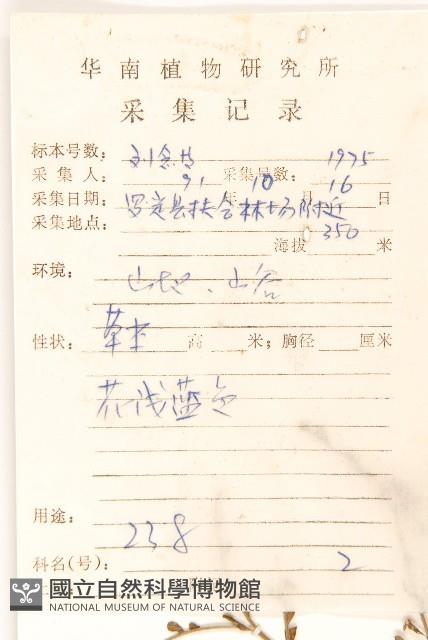 华南植物研究所
采集记录
标本号数:
采集人: 刘念 采集号数: 1975
采集日期: 91年10月16日
采集地点: 罗定县扶合林场附近
海拔 350 米
环境: 山地、山谷
性状: 草本 高 米; 胸径 厘米
花浅蓝色
用途:
238
科名(号): 2
國立自然科學博物館
NATIONAL MUSEUM OF NATURAL SCIENCE